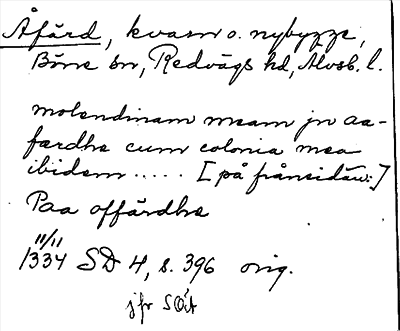 Åfärd, kvarn o. nybygge,
Böne sn, Redvägs hd, Älvsb. l.
molendinum meam jn aa-
færdhe cum colonia mea
ibidem ..... [på frånsidan:]
Paa offärdhe
11/11
1334 SD 4, s. 396 orig.
jfr SOÄ